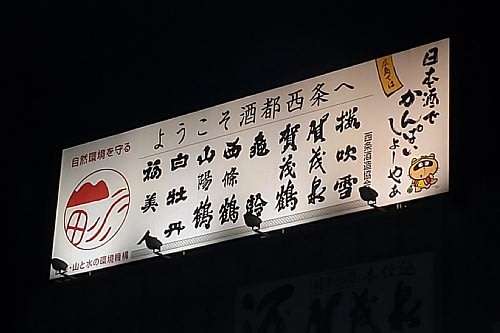 ようこそ酒都西条へ
広島では
日本酒で
かんぱい
しよーやぁ
櫻吹雪
賀茂泉
賀茂鶴
亀齢
西條鶴
山陽鶴
白牡丹
福美人
西条酒造協会
自然環境を守る
・山と水の環境機構
賀茂泉